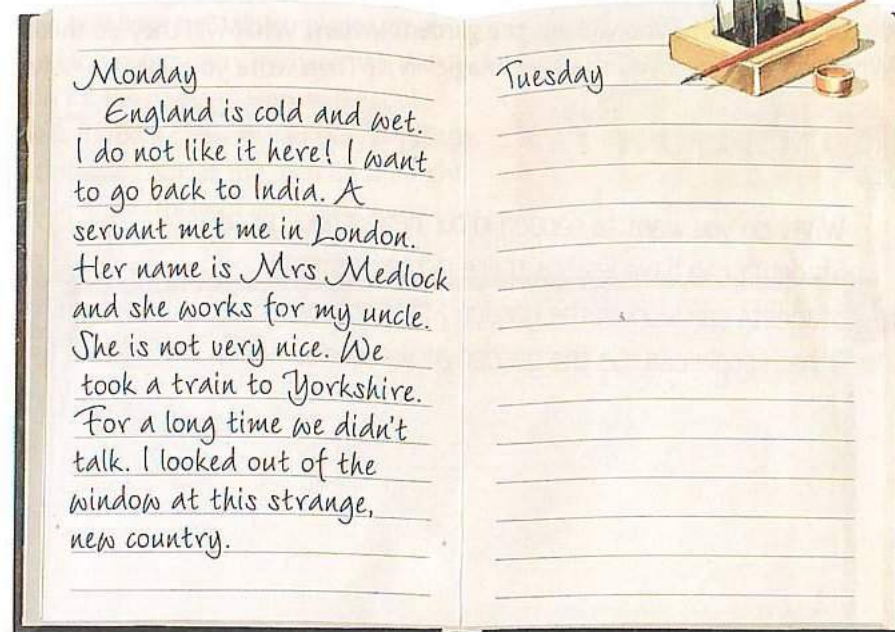 Monday
England is cold and wet.
I do not like it here! I want
to go back to India. A
servant met me in London.
Her name is Mrs Medlock
and she works for my uncle.
She is not very nice. We
took a train to Yorkshire.
For a long time we didn't
talk. I looked out of the
window at this strange,
new country.
Tuesday